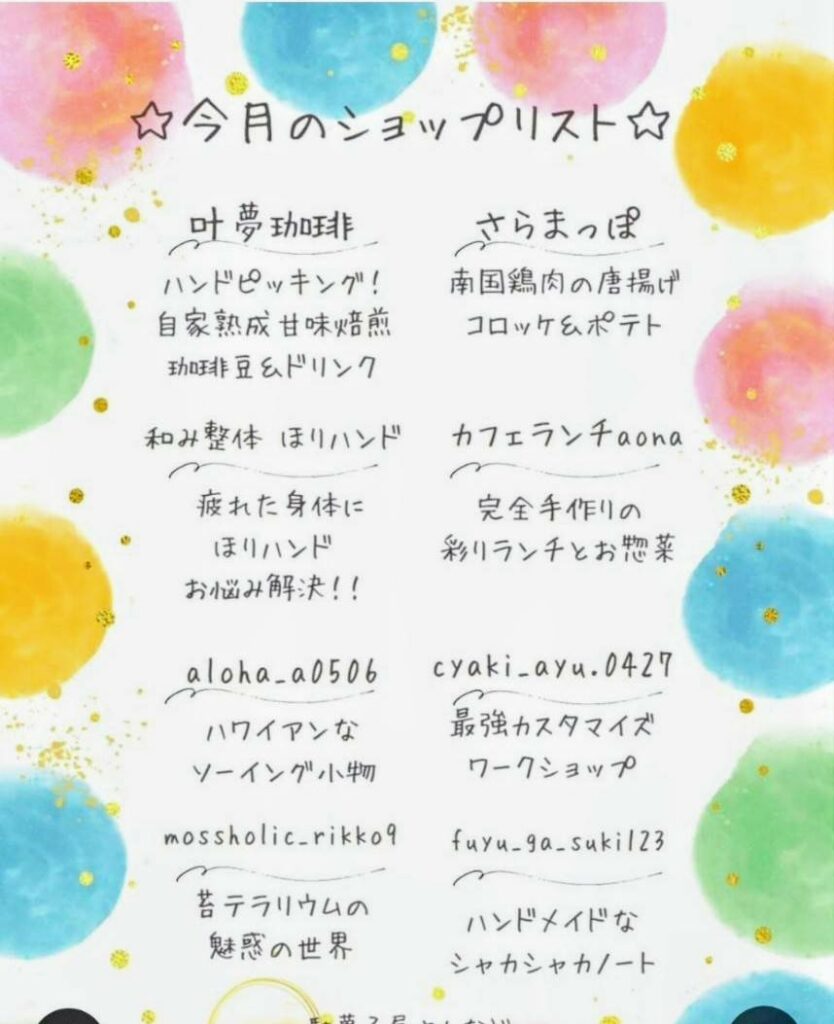 ☆今月のショップリスト☆
叶夢珈琲
ハンドピッキング!
自家熟成甘味焙煎
珈琲豆&ドリンク
さらまっぽ
南国鶏肉の唐揚げ
コロッケ&ポテト
和み整体 ほりハンド
疲れた身体に
ほりハンド
お悩み解決!!
カフェランチaona
完全手作りの
彩りランチとお惣菜
aloha_a0506
ハワイアンな
ソーイング小物
cyaki_ayu.0427
最強カスタマイズ
ワークショップ
mossholic_rikko9
苔テラリウムの
魅惑の世界
fuyu_ga_suki123
ハンドメイドな
シャカシャカノート